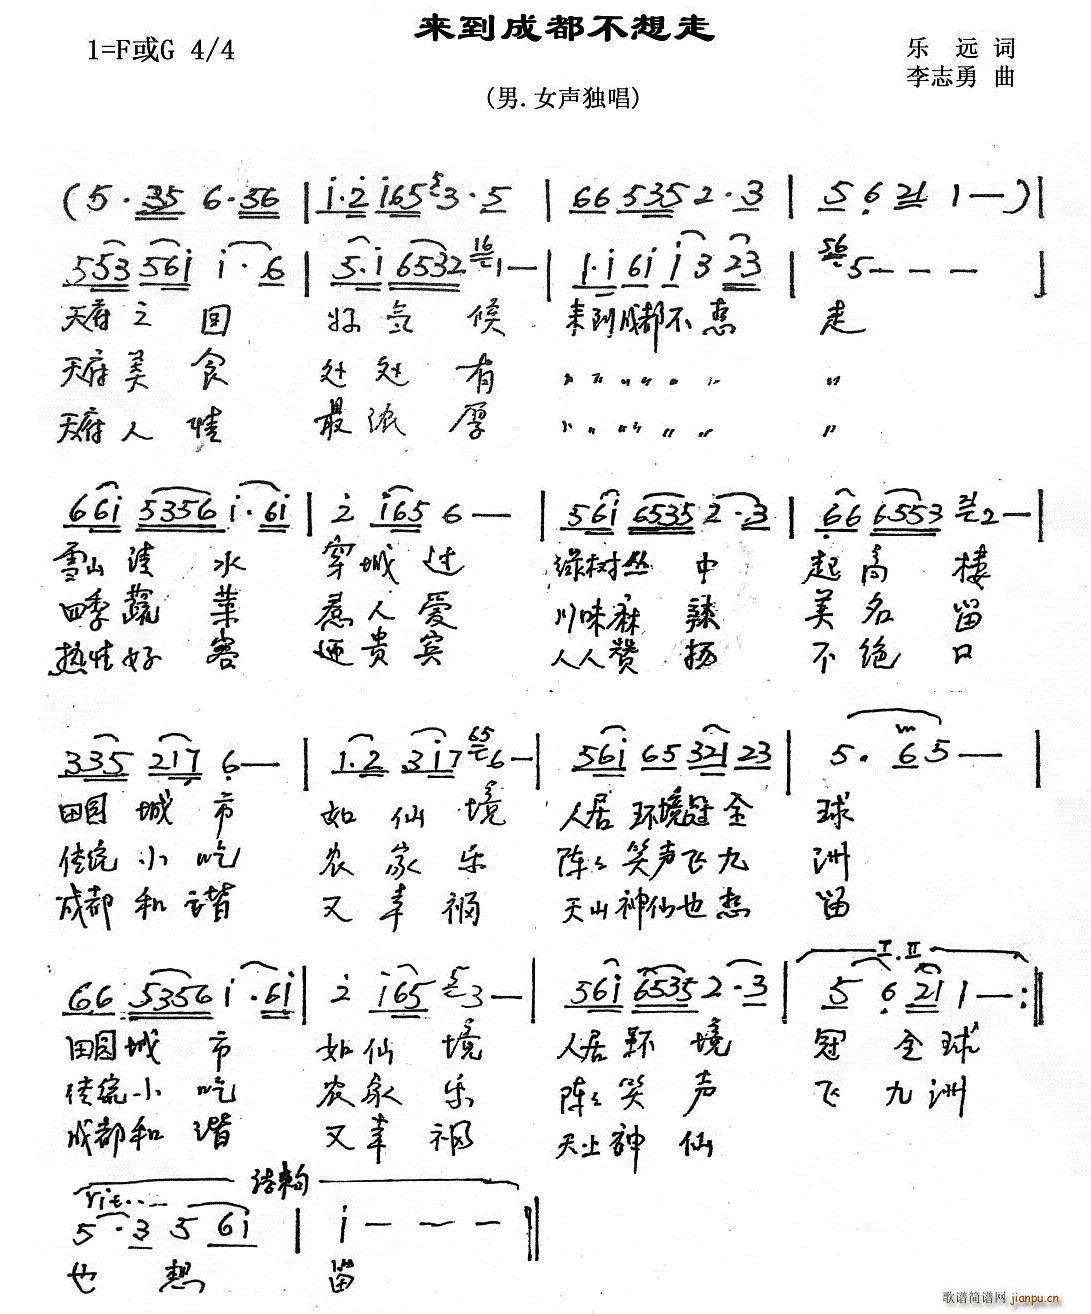 来到成都不想走
1=F或G 4/4
乐 远 词
李志勇 曲
(男.女声独唱)
(5·35 6·56 | i·2 i65 5 3·5 | 66 535 2·3 | 5 6 21 1—)|
553 56i i·6 | 5·i 6532 16 1— | 1·i 6i i3 23 | 56 5— — — ]
天府之国 好气候 来到成都不想 走
天府美食 处处有 〃〃〃〃〃〃 〃
天府人情 最浓厚 〃〃〃〃〃〃 〃
66i 5356 i·6i | 2 i65 6— | 56i 6535 2·3 | 66 6553 21 2— |
雪山清水 穿城过 绿树丛中 起高楼
四季蔬菜 惹人爱 川味麻辣 美名留
热情好客 迎贵宾 人人赞扬 不绝口
335 217 6— | 1·2 3i7 65 6— | 56i 65 321 23 | 5·65— |
田园城市 如仙境 人居环境冠全 球
传统小吃 农家乐 阵々笑声飞九 洲
成都和谐 又幸福 天上神仙也想 留
I.II
66 5356 i·6i | 2 i65 5 3— | 56i 6535 2·3 | 5 6 21 1—:‖
田园城市 如仙境 人居环境 冠全球
传统小吃 农家乐 阵々笑声 飞九洲
成都和谐 又幸福 天上神仙
结束句
rit...
5·3 5 6i | i — — — ‖
也想 留
歌谱简谱网
jianpu.cn